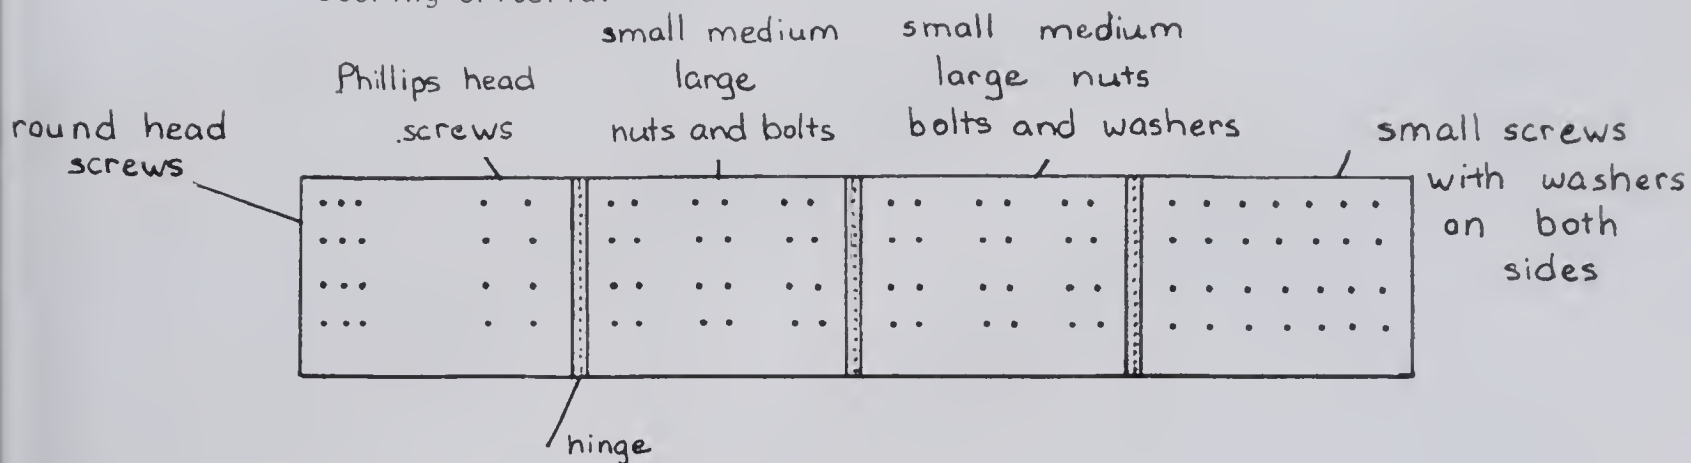 round head
screws
Phillips head
screws
small medium
large
nuts and bolts
small medium
large nuts
bolts and washers
small screws
with washers
on both
sides
hinge